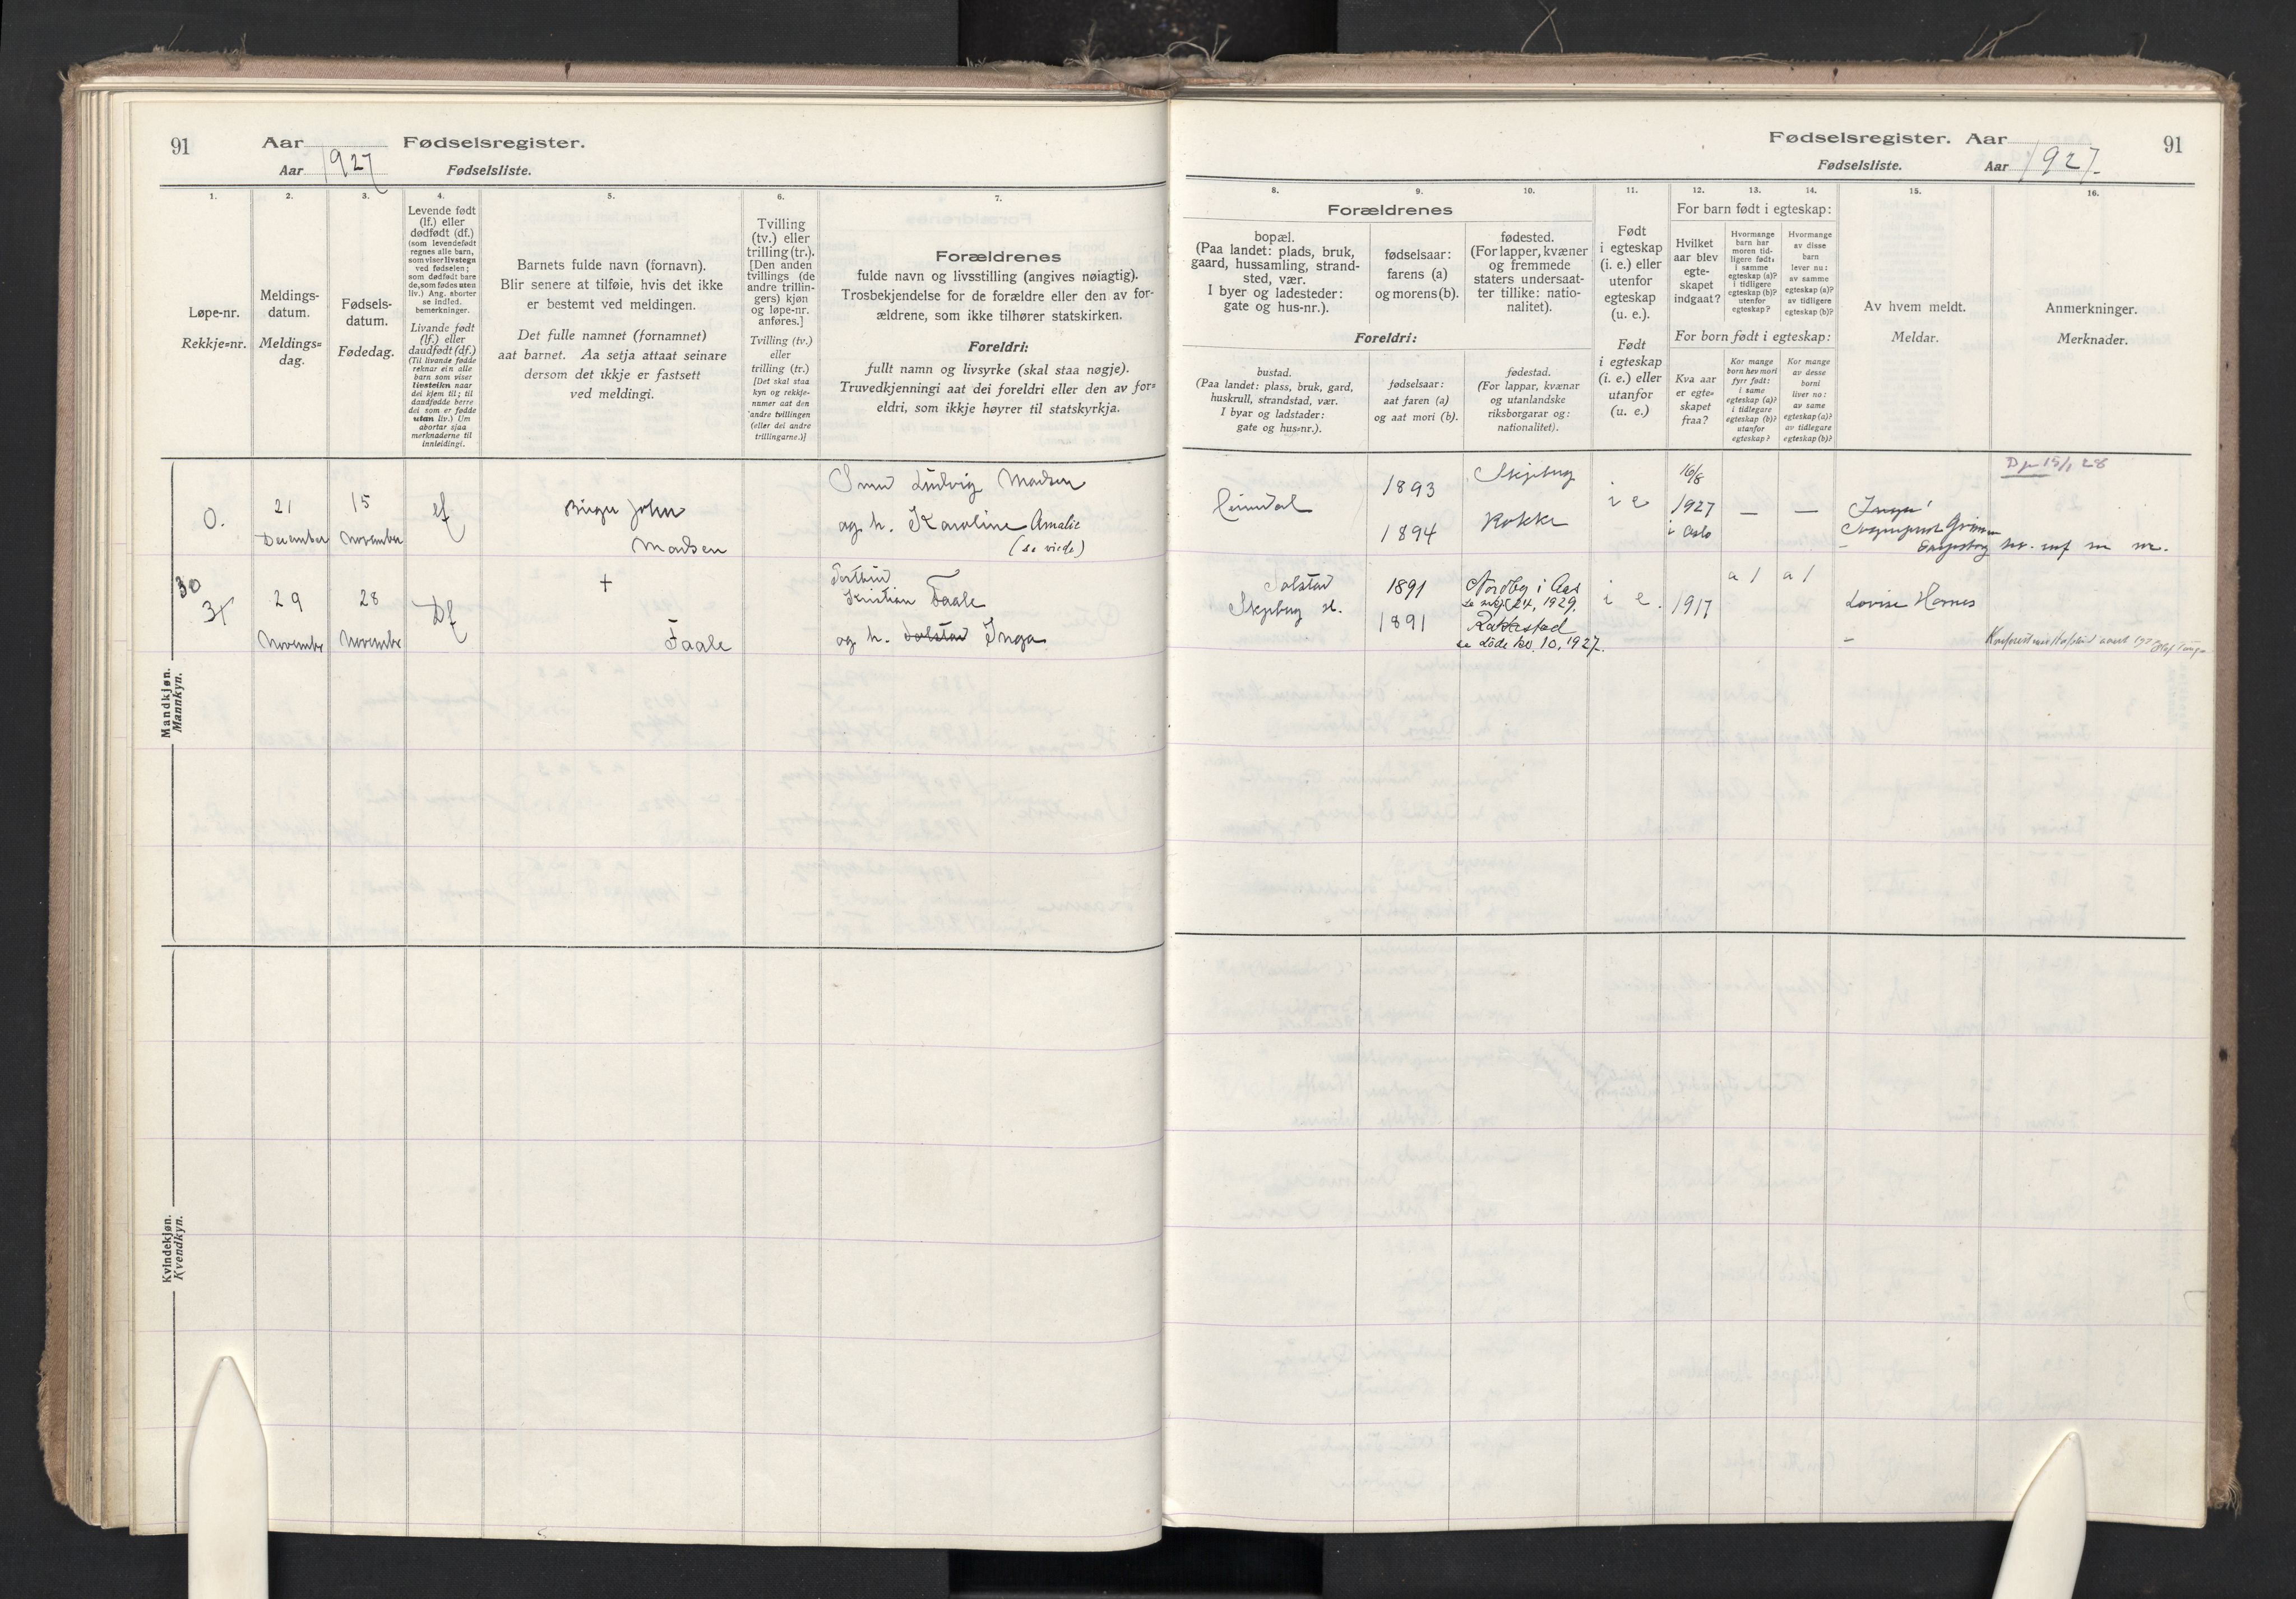 91
Aar
Fødselsregister.
Aar 1927
Fødselsliste.
1.
Løpe-nr.
Rekkje=nr.
2.
Meldings-
datum.
Meldings=
dag.
3.
Fødsels-
datum.
Fødedag.
4.
Levende født
(lf.) eller
dødfødt (df.)
(som levendefødt
regnes alle barn,
som viser livstegn
ved fødselen;
som dødfødt bare
de, som fødes uten
liv.) Ang. aborter
se indled.
bemerkninger.
Livande født
(lf.) eller
daudfødt (df.)
(Til livande fødde
reknar ein alle
barn som viser
livsteikn naar
dei kjem til; til
daudfødde berre
dei som er fødde
utan liv.) Um
abortar sjaa
merknaderne til
innleidingi.
5.
Barnets fulde navn (fornavn).
Blir senere at tilføie, hvis det ikke
er bestemt ved meldingen.
Det fulle namnet (fornamnet)
aat barnet. Aa setja attaat seinare
dersom det ikkje er fastsett
ved meldingi.
6.
Tvilling
(tv.) eller
trilling (tr.).
[Den anden
tvillings (de
andre trillin-
gers) kjøn
og løpe-nr.
anføres.]
Tvilling (tv.)
eller
trilling (tr.)
[Det skal staa
kyn og rekkje-
numer aat den
andre tvillingen
(eller dei andre
trillingarne.)]
7.
Forældrenes
fulde navn og livsstilling (angives nøiagtig).
Trosbekjendelse for de forældre eller den av for-
ældrene, som ikke tilhører statskirken.
Foreldri:
fullt namn og livsyrke (skal staa nøgje).
Truvedkjenningi aat dei foreldri eller den av for=
eldri, som ikkje høyrer til statskyrkja.
Mandkjøn.
Mannkyn.
0.
21
December
15
November
Birger John
Madsen
Smed Ludvig Madsen
og h. Karoline Amalie
(se viede)
30
31
29
November
28
November
Df
+
Faale
Kristian Faale
og h. Solstad Inga
Kvindekjøn.
Kvendkyn.
Fødselsregister. Aar
91
Fødselsliste.
Aar 1927.
8.
Forældrenes
bopæl.
(Paa landet: plads, bruk,
gaard, hussamling, strand-
sted, vær.
I byer og ladesteder:
gate og hus-nr.).
Foreldri:
bustad.
(Paa landet: plass, bruk, gard,
huskrull, strandstad, vær.
I byar og ladstader:
gate og hus=nr.).
9.
fødselsaar:
farens (a)
og morens (b).
fødselsaar:
aat faren (a)
og aat mori (b).
10.
fødested.
(For lapper, kvæner
og fremmede
staters undersaat-
ter tillike: natio-
nalitet).
fødestad.
(For lappar, kvænar
og utanlandske
riksborgarar og:
nationalitet).
11.
Født
i egteskap
(i. e.) eller
utenfor
egteskap
(u. e.).
Født
i egteskap
(i. e.) eller
utanfor
(u. e.)
For barn født i egteskap:
12.
Hvilket
aar blev
egte-
skapet
indgaat?
For born født i egteskap:
Kva aar
er egte=
skapet
fraa?
13.
Hvormange
barn har
moren tid-
ligere født:
i samme
egteskap (a)?
i tidligere
egteskap (b)?
utenfor
egteskap?
Kor mange
born hev mori
fyrr født:
i same
egteskap (a)?
i tidlegare
egteskap (b)?
utanfor
egteskap?
14.
Hvormange
av disse
barn
lever nu:
av samme
egteskap (a)?
av tidligere
egteskap (b)?
Kor mange
av desse
borni
liver no:
av same
egteskap (a)?
av tidlegare
egteskap (b)?
15.
Av hvem meldt.
Meldar.
16.
Anmerkninger.
Merknader.
1893
1894
Skjeberg
Rokke
i e
16/8
1927
i Oslo
—
—
15/1 28
Solstad
Skjeberg st.
1891
1891
Nordby i Aas
se 24, 1929.
Rakkestad
se Døde no. 10, 1927.
i e.
1917
a 1
a 1
Lovise Hornes